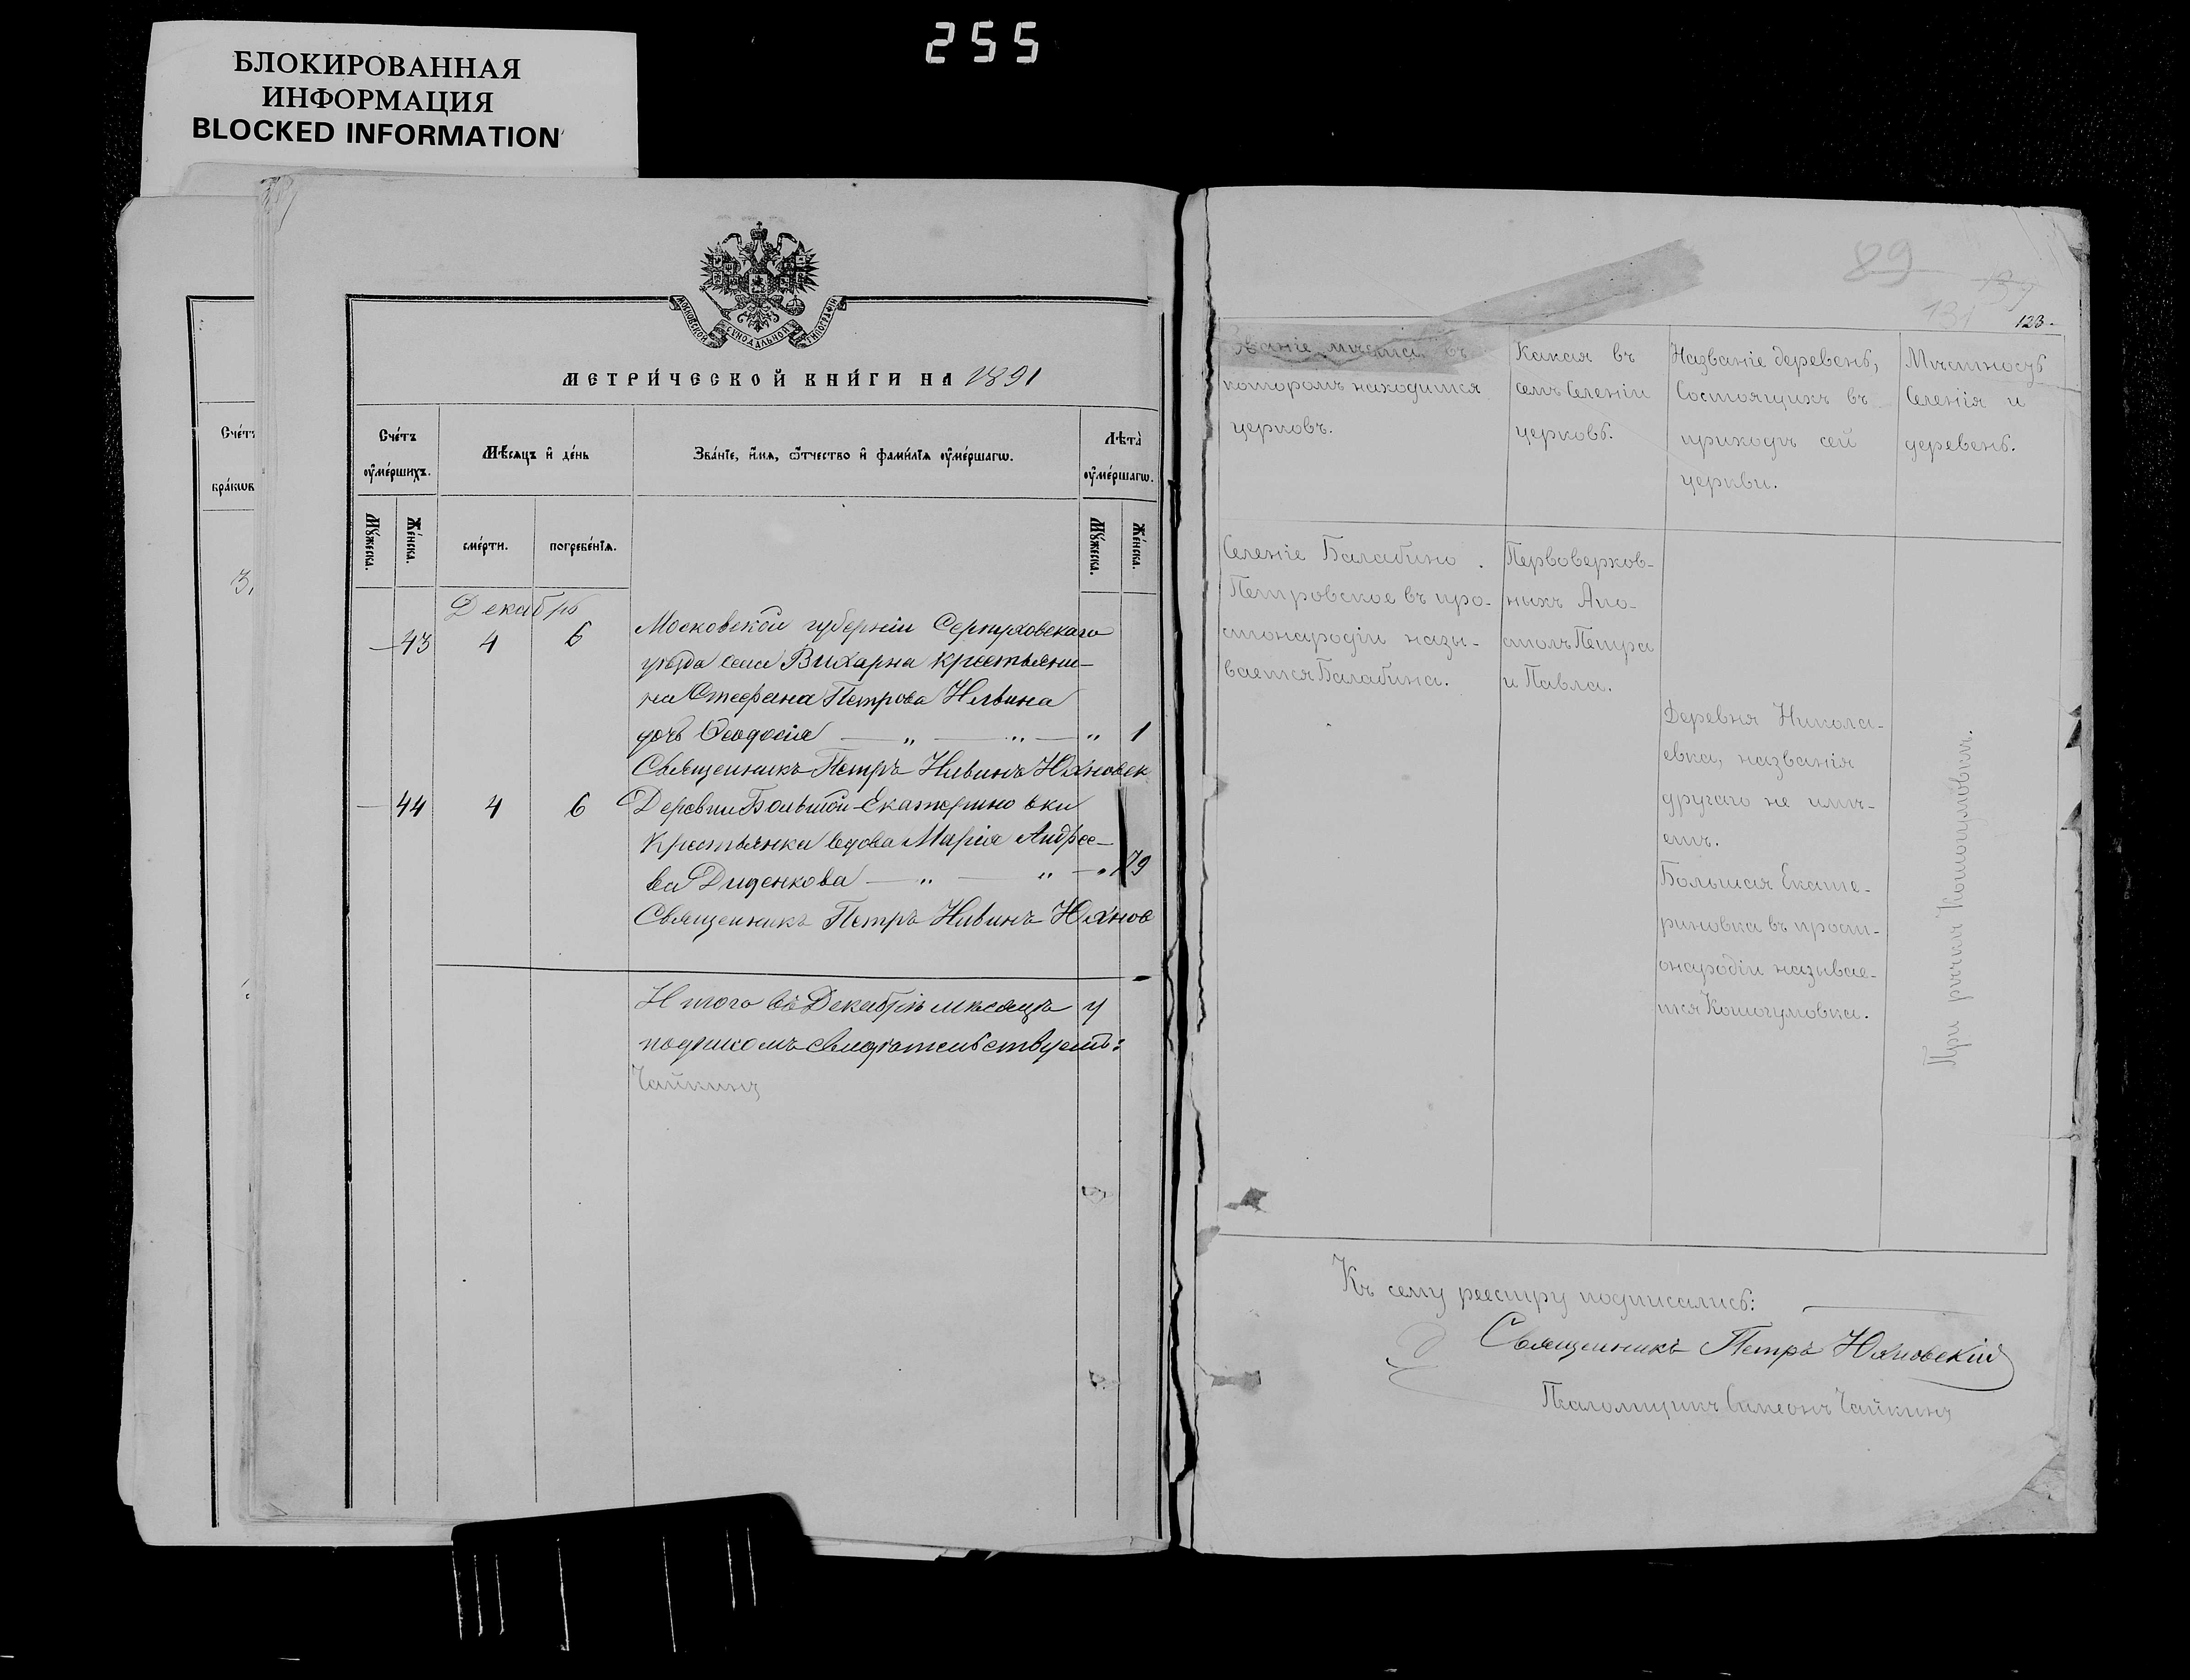 255
БЛОКИРОВАННАЯ
ИНФОРМАЦИЯ
BLOCKED INFORMATION
МОСКОВСКОЙ СѴНОДАЛЬНОЙ ТИПОГРАФІИ
МЕТРИ́ЧЕСКОЙ КНИ́ГИ НА 1891
Сче́тъ
бра́кѡв
3,
Сче́тъ
оу҆ме́ршихъ.
Мѣ́сяцъ и҆ де́нь
Зва́нїе, и҆́мя, ѻ҆́тчество и҆ фами́лїя оу҆ме́ршагѡ.
Лѣта̀
оу҆ме́ршагѡ.
Мꙋ́жеска.
Же́нска.
сме́рти.
погребе́нїя.
Мꙋ́жеска.
Же́нска.
Декабрь
— 43 4 6 Московской губерніи Серпуховскаго
уѣзда села Вихарна крестьяни-
на Стефана Петрова Ильина
дочь Ѳеодосія — „ — „ — „ 1
Священникъ Петръ
— 44 4 6 Деревни Большой-Екатериновки
Крестьянка вдова Марія Андрее-
ва Диденкова — „ — „ — „ 79
Священникъ Петръ
Итого въ Декабрѣ мѣсяцѣ у
Чайкинъ
89
131
123.
Званіе мѣста въ
которомъ находится
церковь.
Какая въ
семъ Селеніи
церковь.
Названіе деревень,
Состоящихъ въ
приходѣ сей
церкви.
Мѣстность
Селенія и
деревень.
Селеніе Балабино.
Петровское въ про-
стонародіи назы-
вается Балабина.
Первоверхов-
ныхъ Апо-
столъ Петра
и Павла.
Деревня Никола-
евка, названія
другаго не имѣ-
етъ.
Большая Екате-
риновка въ прост-
онародіи называе-
тся Кошогумовка.
При рѣчкѣ Кошогумовкѣ.
Къ сему реестру подписались:
Священникъ Петръ Юхновскій
Псаломщикъ Симеонъ Чайкинъ